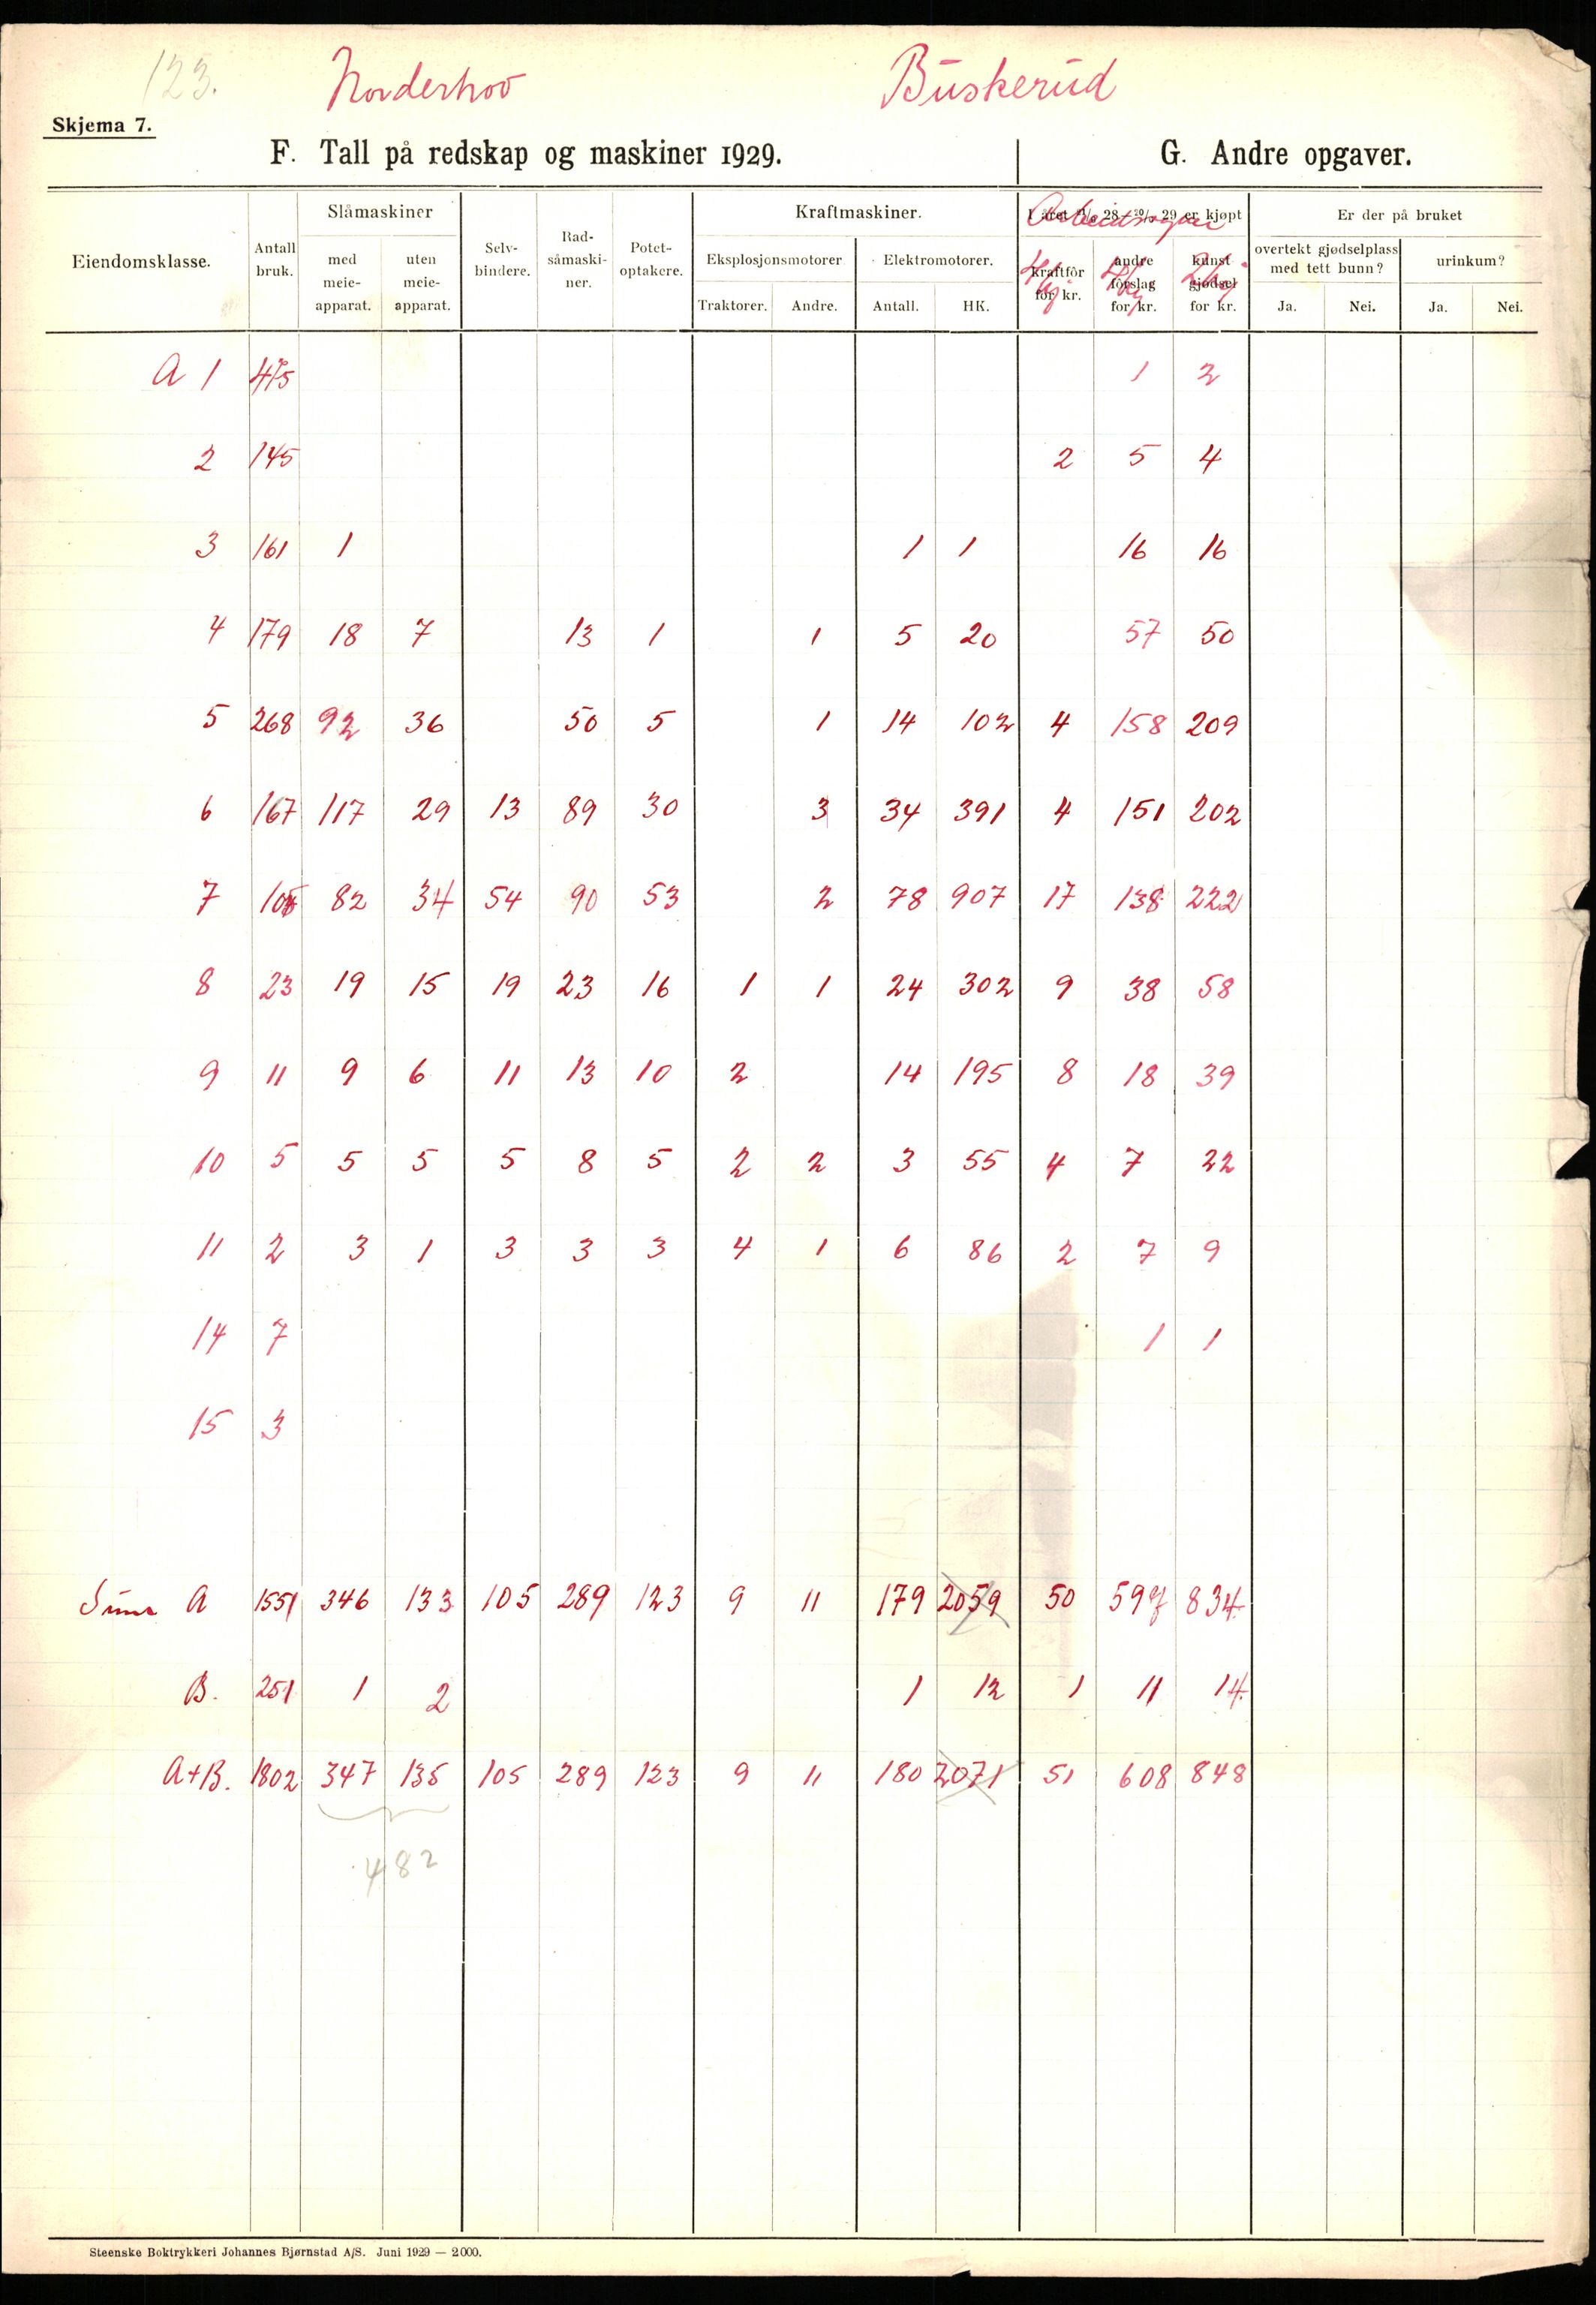 123. Norderhov Buskerud
Skjema 7.
F. Tall på redskap og maskiner 1929. G. Andre opgaver.
Eiendomsklasse. Antall bruk. Slåmaskiner med meie-apparat. uten meie-apparat. Selv-bindere. Rad-såmaski-ner. Potet-optakere. Kraftmaskiner. Eksplosjonsmotorer Traktorer. Andre. Elektromotorer. Antall. HK. I året 28 29 er kjøpt kraftfôr for kr. andre fôrslag for kr. kunst gjødsel for kr. Er der på bruket overtekt gjødselplass med tett bunn? Ja. Nei. urinkum? Ja. Nei.
Arbeidsvogner
4hj 4hj 2hj
A 1 475 1 2
2 145 2 5 4
3 161 1 1 1 16 16
4 179 18 7 13 1 1 5 20 57 50
5 268 92 36 50 5 1 14 102 4 158 209
6 167 117 29 13 89 30 3 34 391 4 151 202
7 105 82 34 54 90 53 2 78 907 17 138 222
8 23 19 15 19 23 16 1 1 24 302 9 38 58
9 11 9 6 11 13 10 2 14 195 8 18 39
10 5 5 5 5 8 5 2 2 3 55 4 7 22
11 2 3 1 3 3 3 4 1 6 86 2 7 9
14 7 1 1
15 3
Sum A 1551 346 133 105 289 123 9 11 179 2059 50 597 834
B. 251 1 2 1 12 1 11 14
A+B. 1802 347 135 105 289 123 9 11 180 2071 51 608 848
482
Steenske Boktrykkeri Johannes Bjørnstad A/S. Juni 1929 — 2000.